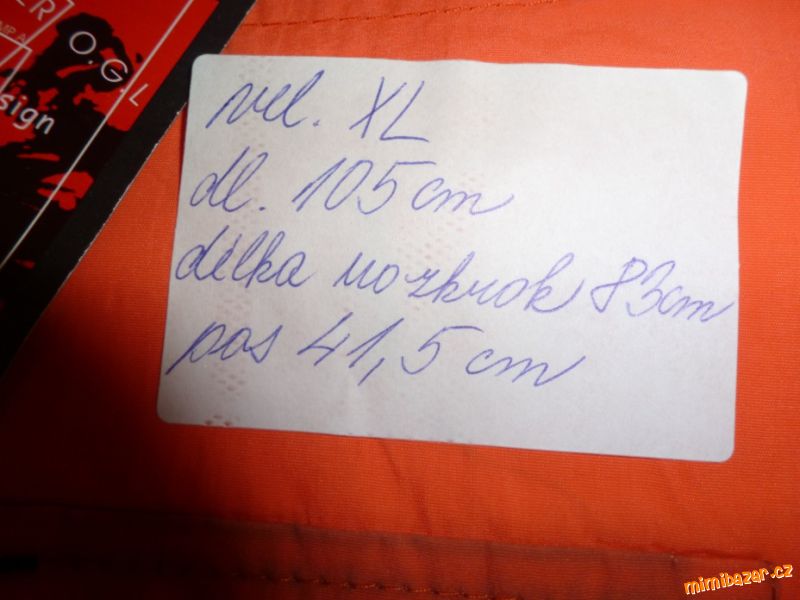 ER
O.G.L
sign
vel. XL
dl. 105cm
délka rozkrok 83cm
pas 41,5cm
mimibazar.cz